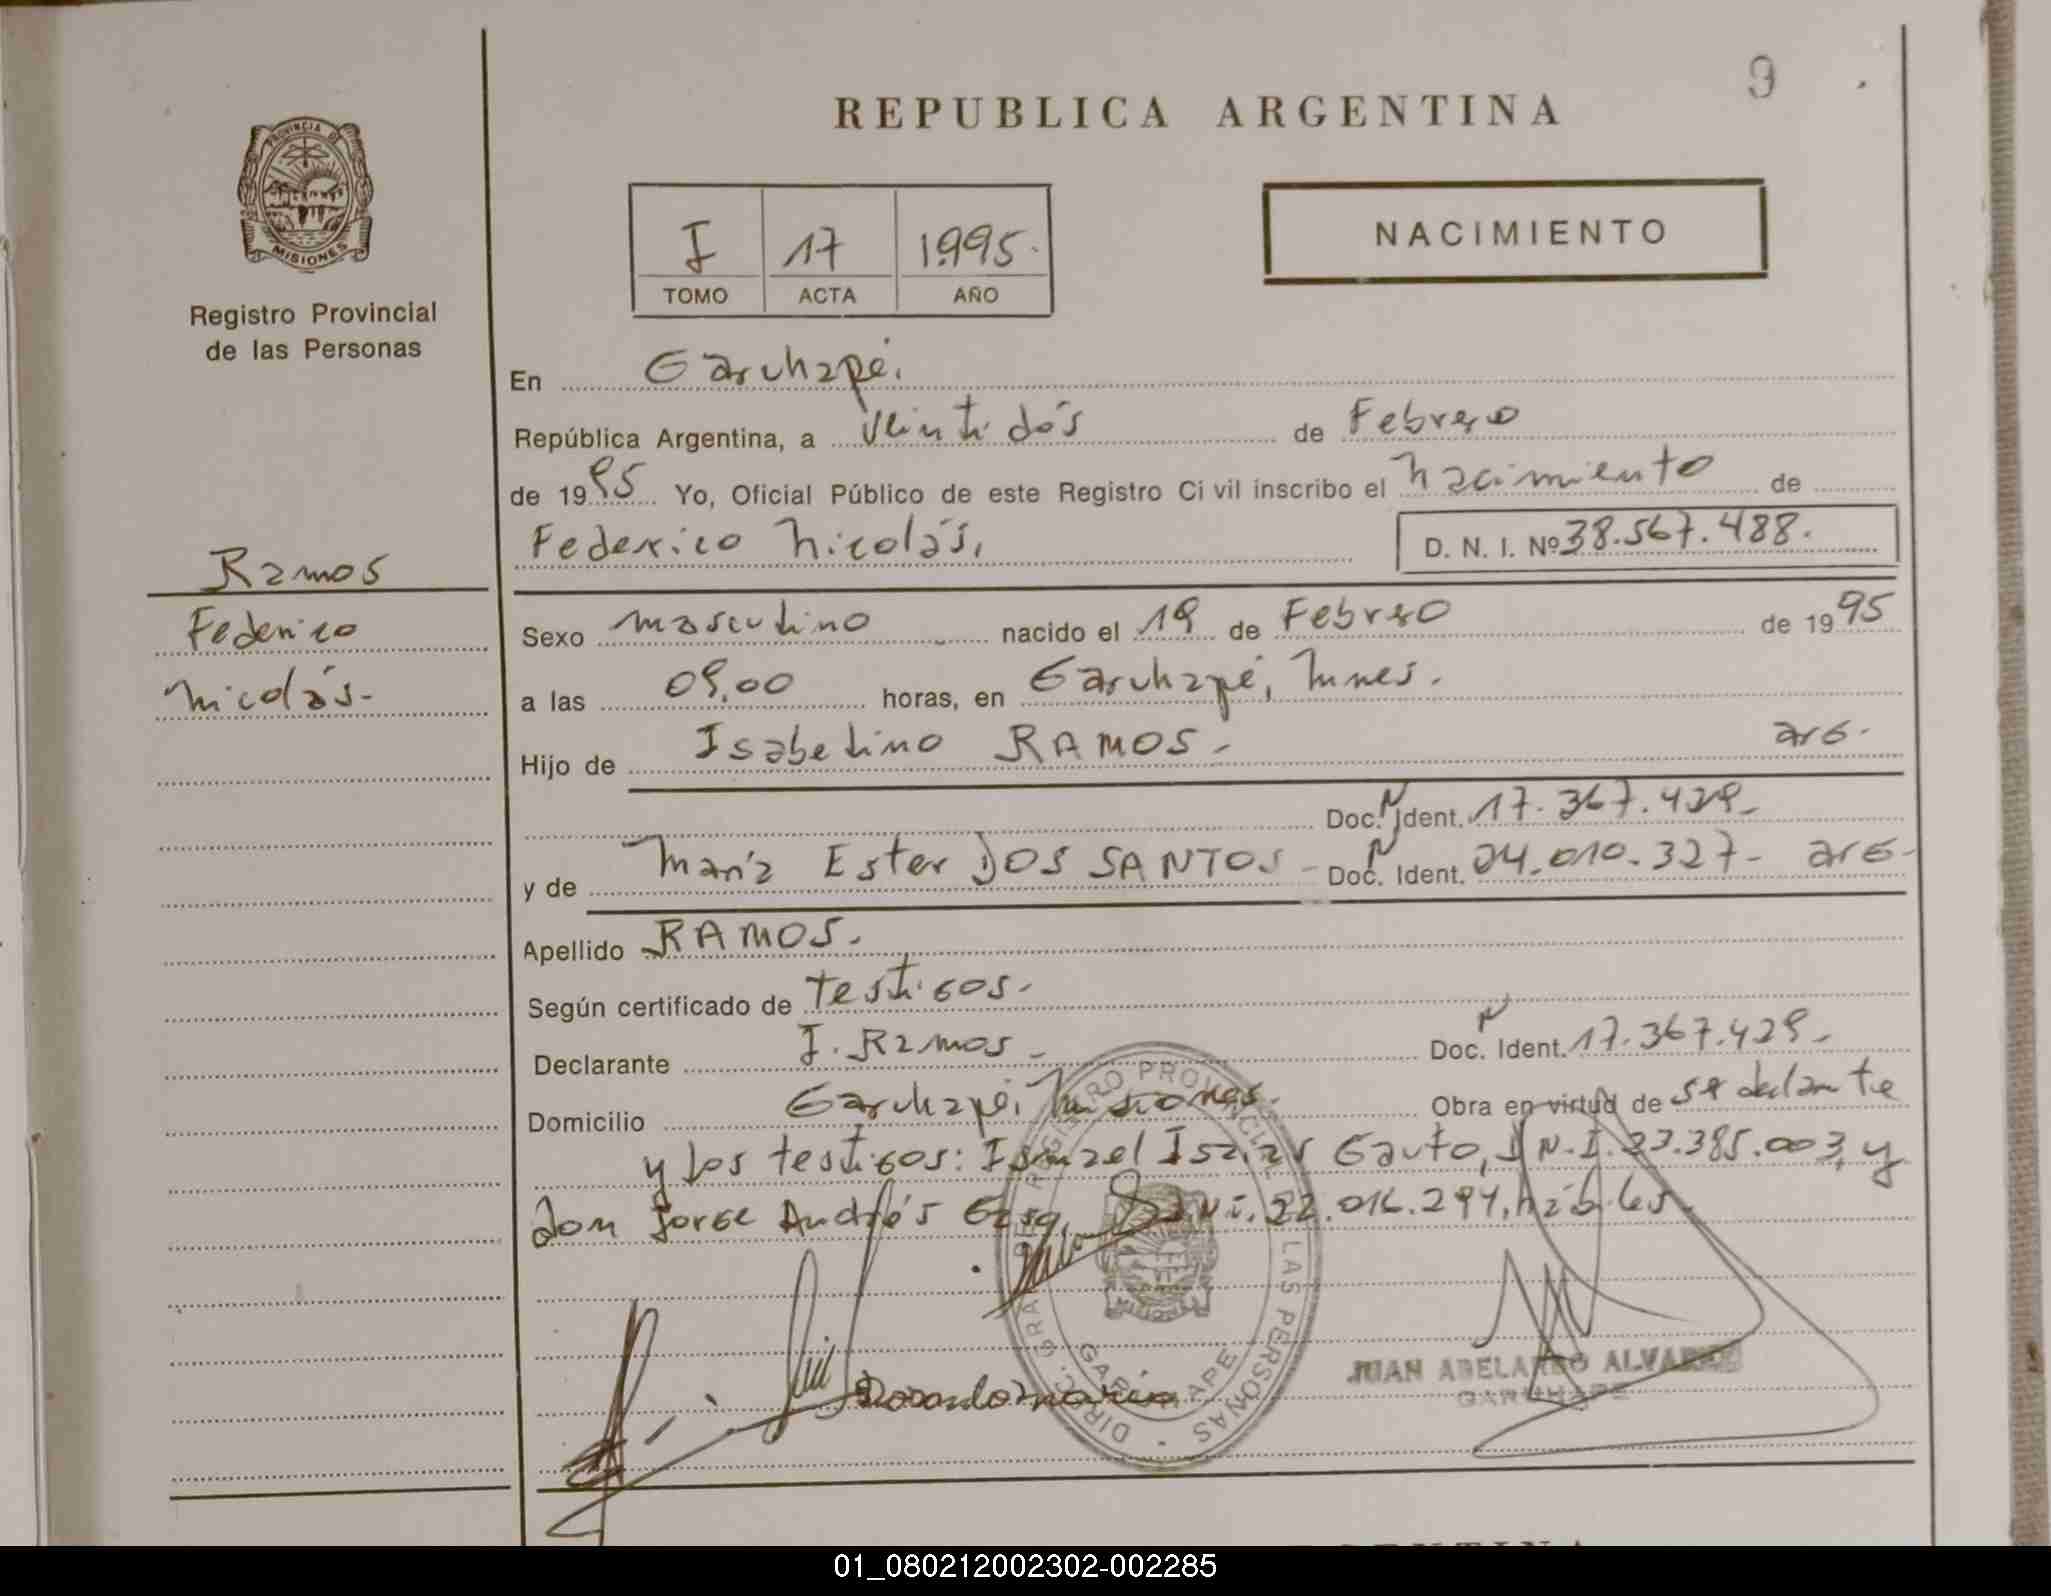 9
REPUBLICA ARGENTINA
PROVINCIA DE
MISIONES
Registro Provincial
de las Personas
I 17 1.995.
TOMO ACTA AÑO
NACIMIENTO
En Garuhapé.
República Argentina, a Veintidós de Febrero
de 1995 Yo, Oficial Público de este Registro Civil inscribo el nacimiento de
Federico Nicolás,
D. N. I. Nº 38.567.488.
Ramos
Federico
Nicolás-
Sexo masculino nacido el 19 de Febrero de 1995
a las 09,00 horas, en Garuhapé, Mnes.
Hijo de Isabelino RAMOS- arg.
Doc. N Ident. 17.367.429-
y de María Ester DOS SANTOS- Doc. N Ident. 24.010.327- arg-
Apellido RAMOS.
Según certificado de testigos-
Declarante I. Ramos- Doc. N Ident. 17.367.429-
Domicilio Garuhapé, Misiones. Obra en virtud de ser declarante
y los testigos: Ismael Isaias Gauto, D.N.I. 23.385.003, y
don Jorge Andrés D.N.I. 22.016.294, hábiles.
DIRECC. GRAL. DE REGISTRO PROVINCIAL DE LAS PERSONAS
MISIONES
GARUHAPE
JUAN ABELARDO ALVAREZ
GARUHAPE
01_080212002302-002285